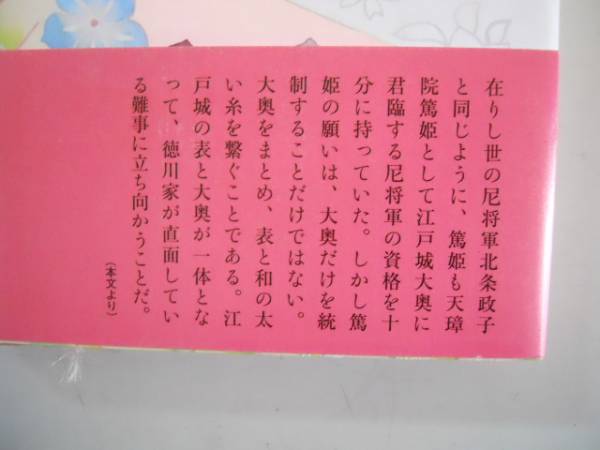 在りし世の尼将軍北条政子
と同じように、篤姫も天璋
院篤姫として江戸城大奥に
君臨する尼将軍の資格を十
分に持っていた。しかし篤
姫の願いは、大奥だけを統
制することだけではない。
大奥をまとめ、表と和の太
い糸を繋ぐことである。江
戸城の表と大奥が一体とな
って、徳川家が直面してい
る難事に立ち向かうことだ。
（本文より）